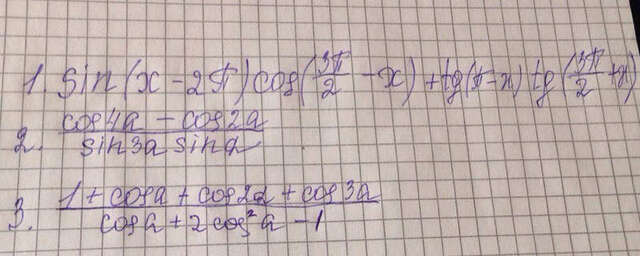 1. sin(x - 2π) cos(3π/2 - x) + tg(π - x) tg(3π/2 + x)
2. cos4a - cos2a / sin3a sina
3. 1 + cosa + cos2a + cos3a / cosa + 2cos²a - 1